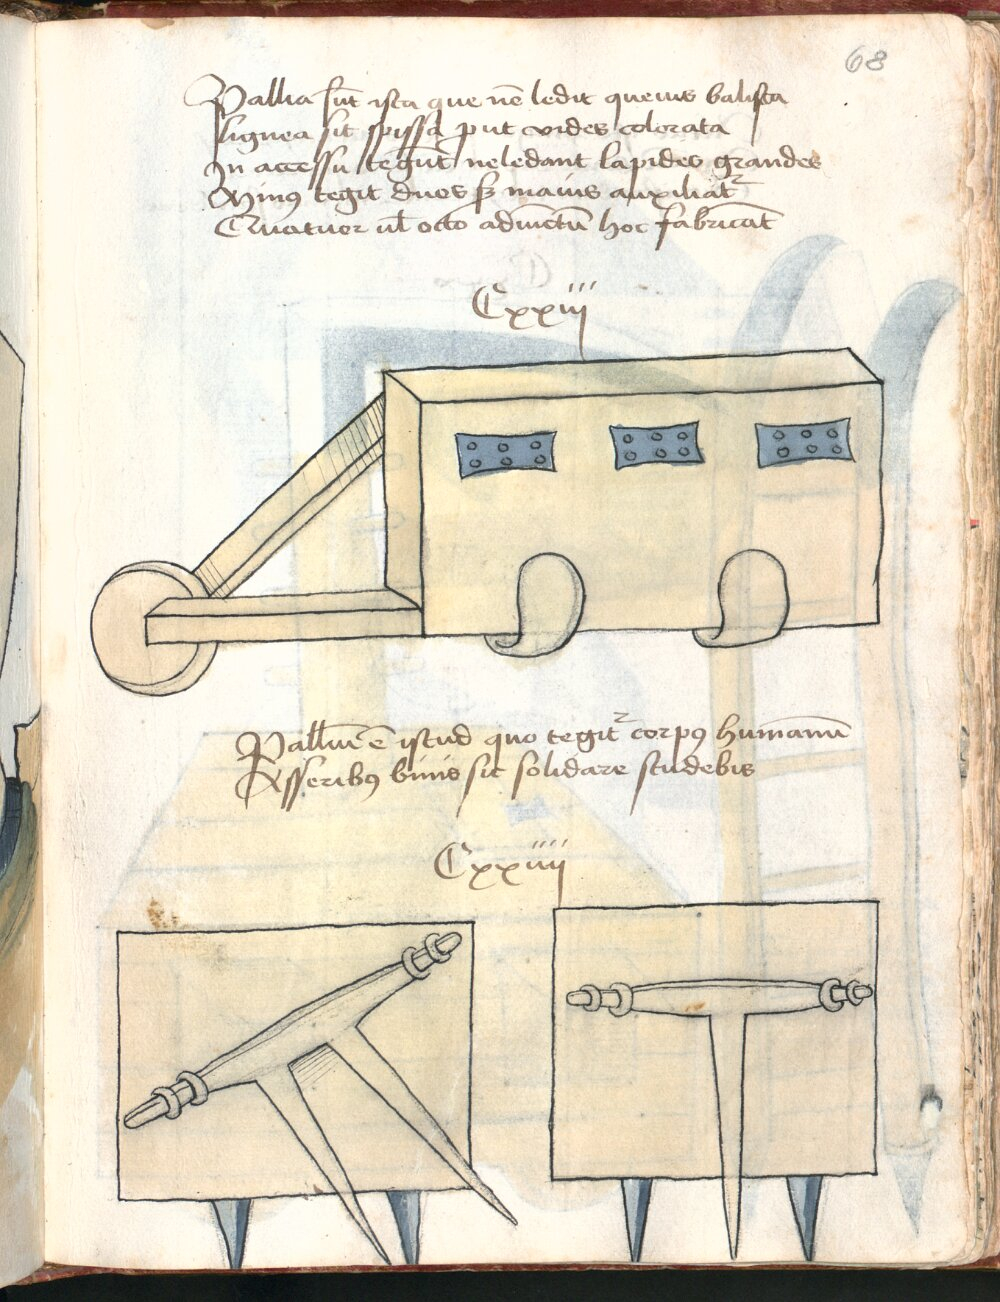 68
Pallia sūt ista que nē ledit quevis balista
lignea sit spissa put vides colorata
In accessu tegūt ne ledant lapides grandes
Minꝰ tegit duos sꝫ maius auxiliat᷑
Quatuor ul̄ octo adiūctū hoc fabricāt
Cxxiii
Palliū ē istud quo tegit᷑ corpꝰ humanū
Asseribꝰ binis sic solidare studebis
Cxxiiii